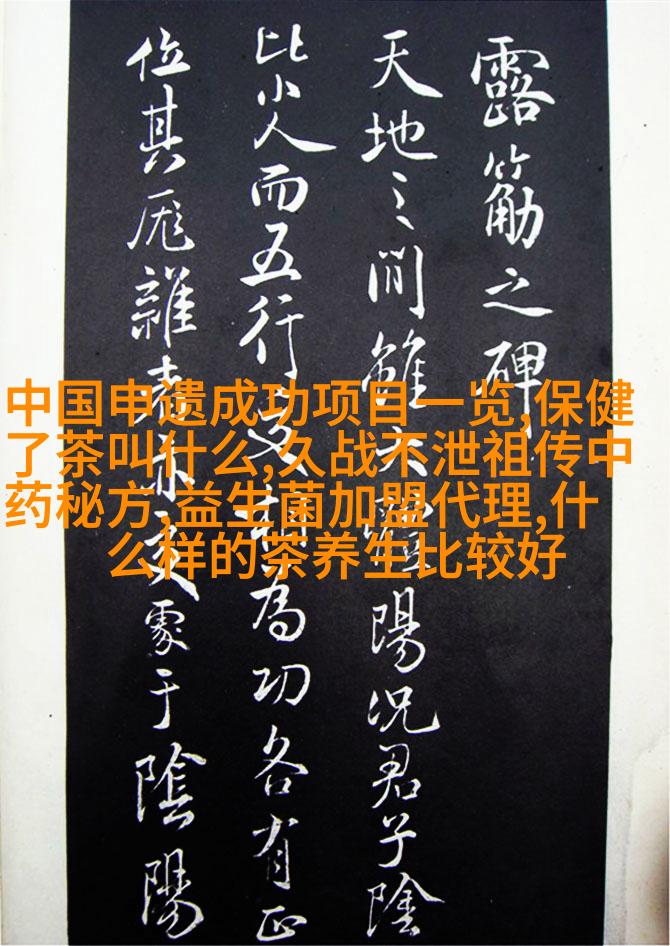 露筋之碑
天地之間雖大陽況君子陰
比小人而五行更為功各有正
位其厖雜亦更處于陰陽
中国申遗成功项目一览,保健
了茶叫什么,久战不泄祖传中
药秘方,益生菌加盟代理,什
么样的茶养生比较好